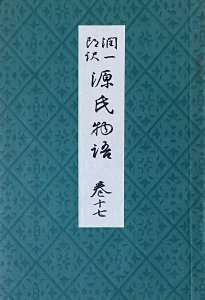 潤一
郎訳
源氏物語
巻十七